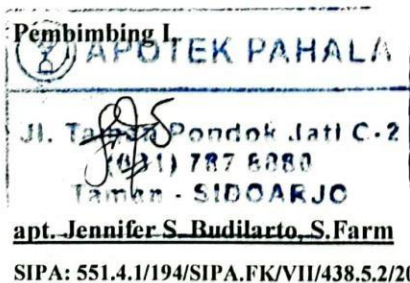 Pembimbing I,
APOTEK PAHALA
Jl. Taman Pondok Jati C-2
(031) 787 8080
Taman - SIDOARJO
apt. Jennifer S. Budilarto, S.Farm
SIPA: 551.4.1/194/SIPA.FK/VII/438.5.2/20